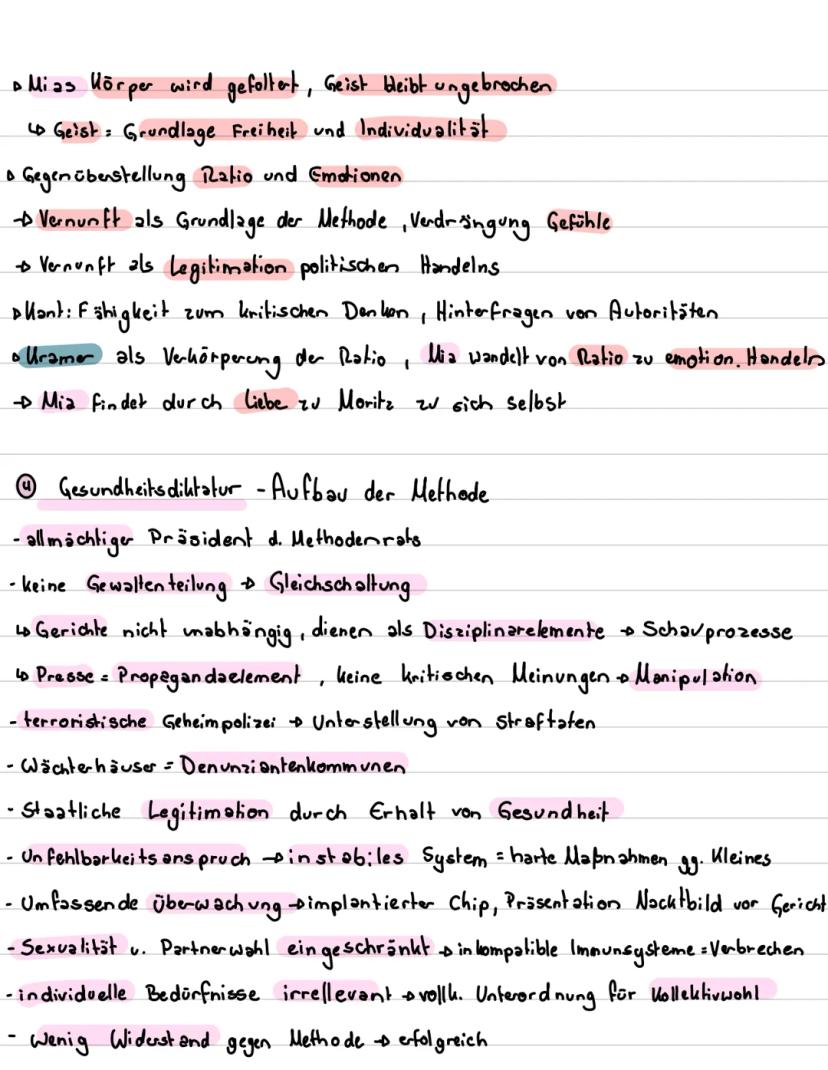 ▷ Mias Körper wird gefoltert, Geist bleibt ungebrochen
↳ Geist = Grundlage Freiheit und Individualität
▷ Gegenüberstellung Ratio und Emotionen
→ Vernunft als Grundlage der Methode, Verdrängung Gefühle
→ Vernunft als Legitimation politischen Handelns
▷ Kant: Fähigkeit zum kritischen Denken, Hinterfragen von Autoritäten
▷ Kramer als Verkörperung der Ratio, Mia wandelt von Ratio zu emotion. Handeln
→ Mia findet durch Liebe zu Moritz zu sich selbst
④ Gesundheitsdiktatur - Aufbau der Methode
- allmächtiger Präsident d. Methodenrats
- keine Gewaltenteilung → Gleichschaltung
↳ Gerichte nicht unabhängig, dienen als Disziplinarelemente → Schauprozesse
↳ Presse = Propagandaelement, keine kritischen Meinungen → Manipulation
- terroristische Geheimpolizei → Unterstellung von Straftaten
- Wächterhäuser = Denunziantenkommunen
- Staatliche Legitimation durch Erhalt von Gesundheit
- Unfehlbarkeitsanspruch → instabiles System = harte Maßnahmen gg. Kleines
- Umfassende Überwachung → implantierter Chip, Präsentation Nacktbild vor Gericht
- Sexualität u. Partnerwahl eingeschränkt → inkompatible Immunsysteme = Verbrechen
- individuelle Bedürfnisse irrellevant → vollk. Unterordnung für Kollektivwohl
- Wenig Widerstand gegen Methode → erfolgreich